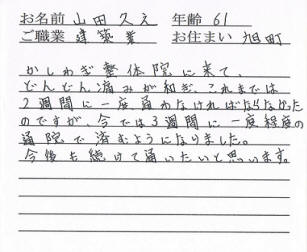 お名前 山田久え 年齢 61
ご職業 建築業 お住まい 旭町
かしわぎ整体院に来て、
どんどん痛みが和ぎ、これまでは
2週間に一度通わなければならなかった
のですが、今では3週間に一度程度の
通院で済むようになりました。
今後も続けて通いたいと思います。